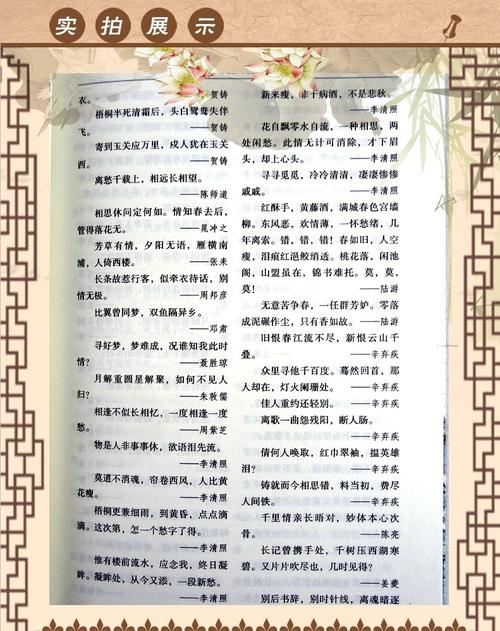 实拍展示
衣。
——贺铸
梧桐半死清霜后，头白鸳鸯失伴
飞。
——贺铸
寄到玉关应万里，戍人犹在玉关
西。
——贺铸
离愁千载上，相远长相望。
——陈师道
相思休问定何如。情知春去后，
管得落花无。
——晁冲之
芳草有情，夕阳无语，雁横南
浦，人倚西楼。
——张耒
长条故惹行客，似牵衣待话，别
情无极。
——周邦彦
比翼曾同梦，双鱼隔异乡。
——邓肃
寻好梦，梦难成，况谁知我此时
情？
——聂胜琼
月解重圆星解聚，如何不见人
归？
——朱敦儒
相逢不似长相忆，一度相逢一度
愁。
——周紫芝
物是人非事事休，欲语泪先流。
——李清照
莫道不消魂，帘卷西风，人比黄
花瘦。
——李清照
梧桐更兼细雨，到黄昏，点点滴
滴。这次第，怎一个愁字了得。
——李清照
惟有楼前流水，应念我，终日凝
眸。凝眸处，从今又添，一段新愁。
——李清照
新来瘦，非干病酒，不是悲秋。
——李清照
花自飘零水自流，一种相思，两
处闲愁。此情无计可消除，才下眉
头，却上心头。
——李清照
寻寻觅觅，冷冷清清，凄凄惨惨
戚戚。
——李清照
红酥手，黄藤酒，满城春色宫墙
柳。东风恶，欢情薄，一怀愁绪，几
年离索。错，错，错！春如旧，人空
瘦，泪痕红浥鲛绡透。桃花落，闲池
阁，山盟虽在，锦书难托。莫，莫，
莫！
——陆游
无意苦争春，一任群芳妒。零落
成泥碾作尘，只有香如故。
——陆游
旧恨春江流不尽，新恨云山千
叠。
——辛弃疾
众里寻他千百度。蓦然回首，那
人却在，灯火阑珊处。
——辛弃疾
佳人重约还轻别。
——辛弃疾
离歌一曲怨残阳，断人肠。
——辛弃疾
倩何人唤取，红巾翠袖，揾英雄
泪？
——辛弃疾
铸就而今相思错，料当初，费尽
人间铁。
——辛弃疾
千里情亲长晤对，妙体本心次
骨。
——陈亮
长记曾携手处，千树压西湖寒
碧。又片片吹尽也，几时见得？
——姜夔
别后书辞，别时针线，离魂暗逐